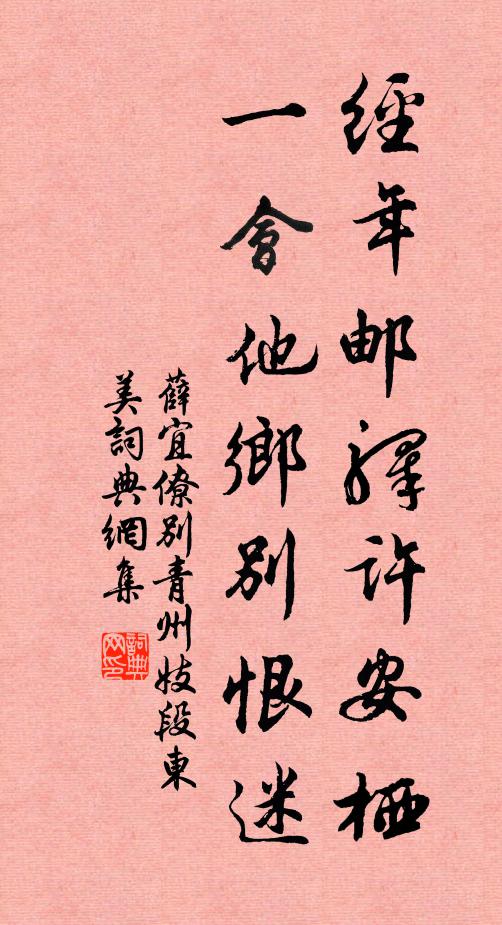 經年邮驛許安栖
一會他鄉別恨迷
薛宜僚別青州妓段東
美詞典網集
詞典
网印